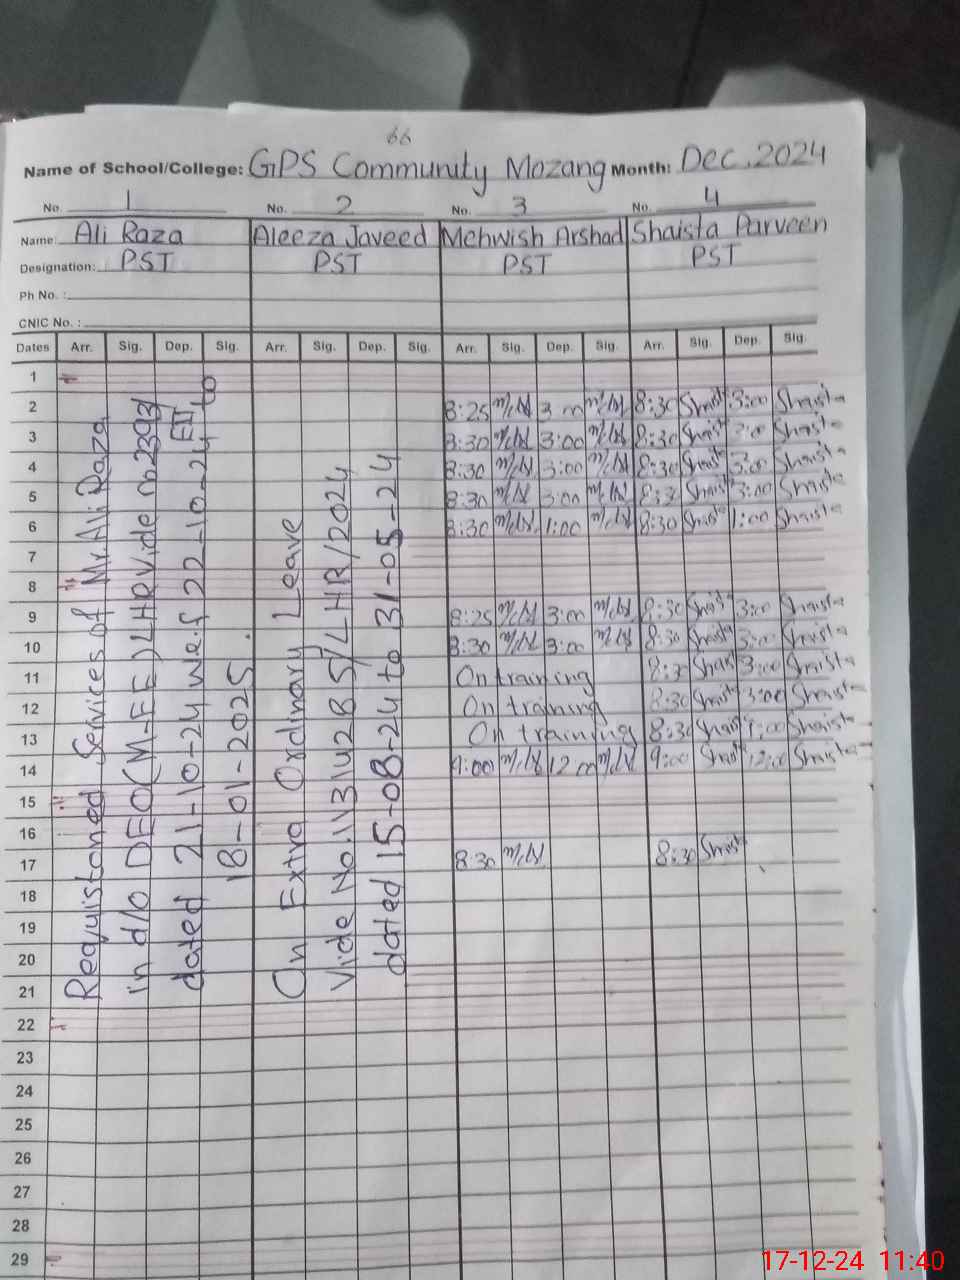 66
Name of School/College: GPS Community Mozang Month: Dec. 2024
No. 1 No. 2 No. 3 No. 4
Name: Ali Raza Aleeza Javeed Mehwish Arshad Shaista Parveen
Designation: PST PST PST PST
Ph No. :
CNIC No. :
Dates Arr. Sig. Dep. Sig. Arr. Sig. Dep. Sig. Arr. Sig. Dep. Sig. Arr. Sig. Dep. Sig.
1
2 8:25 3:00 8:30 Shaist 3:00 Shaista
3 8:30 3:00 8:30 Shaist 3:00 Shaista
4 8:30 3:00 8:30 Shaist 3:00 Shaista
5 8:30 3:00 8:30 Shaist 3:00 Shaista
6 8:30 1:00 8:30 Shaista 1:00 Shaista
7
8
9 8:25 3:00 8:30 Shaist 3:00 Shaista
10 8:30 3:00 8:30 Shaista 3:00 Shaista
11 On training 8:30 Shaist 3:00 Shaista
12 On training 8:30 Shaist 3:00 Shaista
13 On training 8:30 Shaist Shaista
14 9:00 12:00 9:00 Shaist 12:00 Shaista
15
16
17 8:30 8:30 Shaist
18
19
20
21
22
23
24
25
26
27
28
29
Requisitoned Services of Mr. Ali Raza
in d/o DEO (M-EE) LHR Vide no 2393/
EII
dated 21-10-24 w.e.f 22-10-24 to
18-01-2025
On Extra Ordinary Leave
Vide No. 1131428 S/LHR/2024
dated 15-08-24 to 31-05-24
17-12-24 11:40